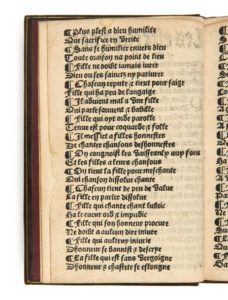 ¶Plus plest a dieu humilite
Que sacrifice en Verite
¶Sans se humilier enuers dieu
Toute oraison na point de lieu
¶Fille ne doibt iamais iurer
Dieu ou ses sainctz ny pariurer
¶Chascun repute & tient pour saige
Fille qui ha peu de langaige
¶Il aduient mal a Une fille
Qui parle souuent & babille
¶Fille qui oyt orde parolle
Tenue est pour coquarde & folle
¶Il messiet a filles honnestes
De chanter chansons deshonnestes
¶On congnoist les
Et les filles a leurs chansons
¶On tient la fille pour meschante
Qui chanson dissolue chante
¶Chascun tient de peu de Value
La fille en parler dissolue
¶Fille qui chante chant lubric
Ha le cueur ord & impudic
¶Fille qui son honneur procure
Ne doibt a aulcun dire iniure
¶Fille qui aultruy iniurie
Dhonneur se bannist & desuoye
¶La fille qui est sans Vergoigne
Dhonneur & chastete se eslongne